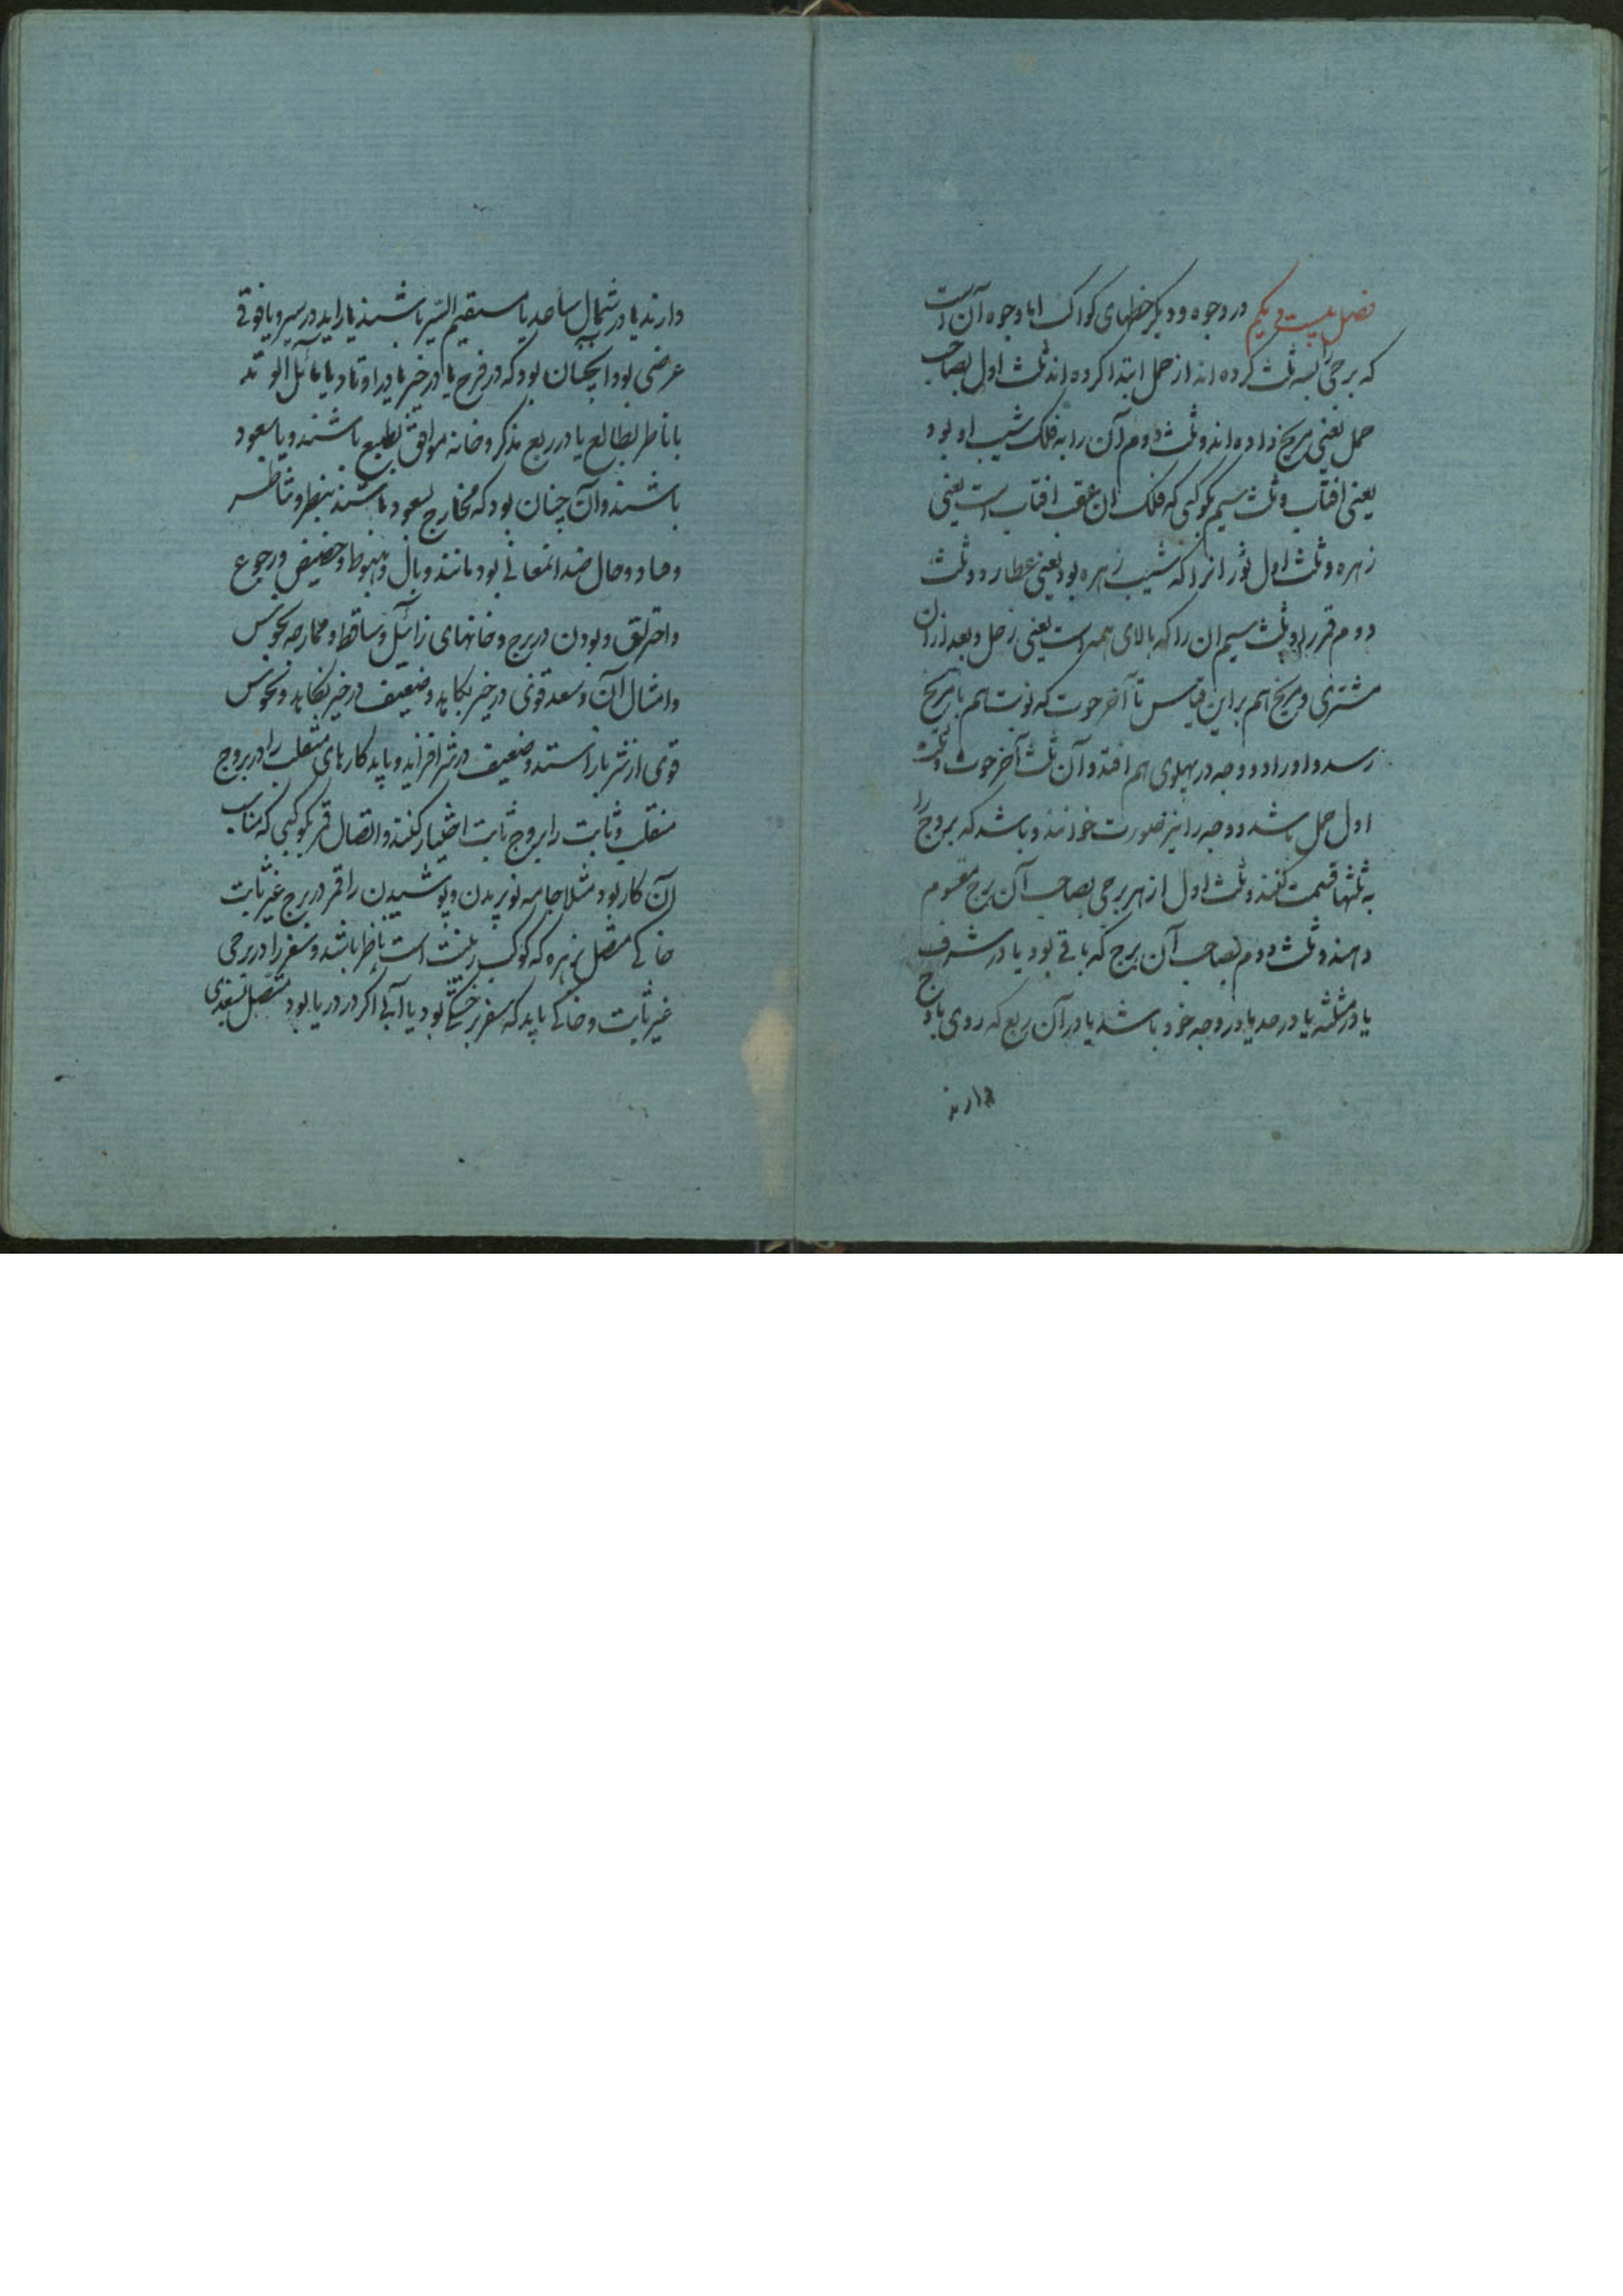 فصل بیست و یکم در وجوه و دیگر حظهای کواکب اما وجوه آن است
که برجی را بسه ثلث کرده اند از حمل ابتدا کرده اند ثلث اول بصاحب
حمل یعنی مریخ داده اند و ثلث دوم آن را به فلک شیب او بود
یعنی افتاب و ثلث سیم بکوکبی که فلک ان عقب افتاب است یعنی
زهره و ثلث اول ثور انرا که شیب زهره بود یعنی عطارد و ثلث
دوم قمر را و ثلث سیم ان را که بالای همه است یعنی زحل و بعد از ان
مشتری و مریخ هم براین قیاس تا آخر حوت که نوبت هم بامریخ
رسد و او را دو وجه در پهلوی هم افتد و آن ثلث آخر حوت و ثلث
اول حمل باشد و وجه را نیز صورت خوانند و باشد که بروج را
به ثلثها قسمت کنند و ثلث اول از هر برجی بصاحب آن برج مقسوم
دهند و ثلث دوم بصاحب آن برج که باقی بود یا در شرف
یا در مثلثه یا در حد یا در وجه خود باشد یا در آن ربع که روی باوج
دارند
دارند یا در شمال صاعد یا مستقیم السیر باشند یا زاید در سیر و یا قوتی
عرضی بود و اینچنان بود که در فرح یا در خیر یا در اوتاد یا مائل الوتد
یا ناظر بطالع یا در ربع مذکر و خانه موافق بطبع باشند و یا سعود
باشند و آن چنان بود که مخارج سعود باشند بنظر و تناظر
و حال ضد انمعانی بود مانند وبال و هبوط و حضیض و رجوع
و احتراق و بودن در برج و خانهای زائل و ساقط و نحوس
و امثال آن و سعد قوی در خیر بکاید و ضعیف در خیر بکاید و نحوس
قوی از شر باز استد و ضعیف در شر افزاید و باید کارهای منقلب را در بروج
منقلب و ثابت را بروج ثابت اختیار کنند و اتصال قمر بکوکبی که مناسب
آن کار بود مثلا جامه نو بریدن و پوشیدن را قمر در برج غیر ثابت
خاکی متصل بزهره که کوکب زینت است ناظر باشد و سفر را در برجی
غیر ثابت و خاکی باید که سفر بر خشکی بود یا آبی اگر در دریا بود متصل بسعدی